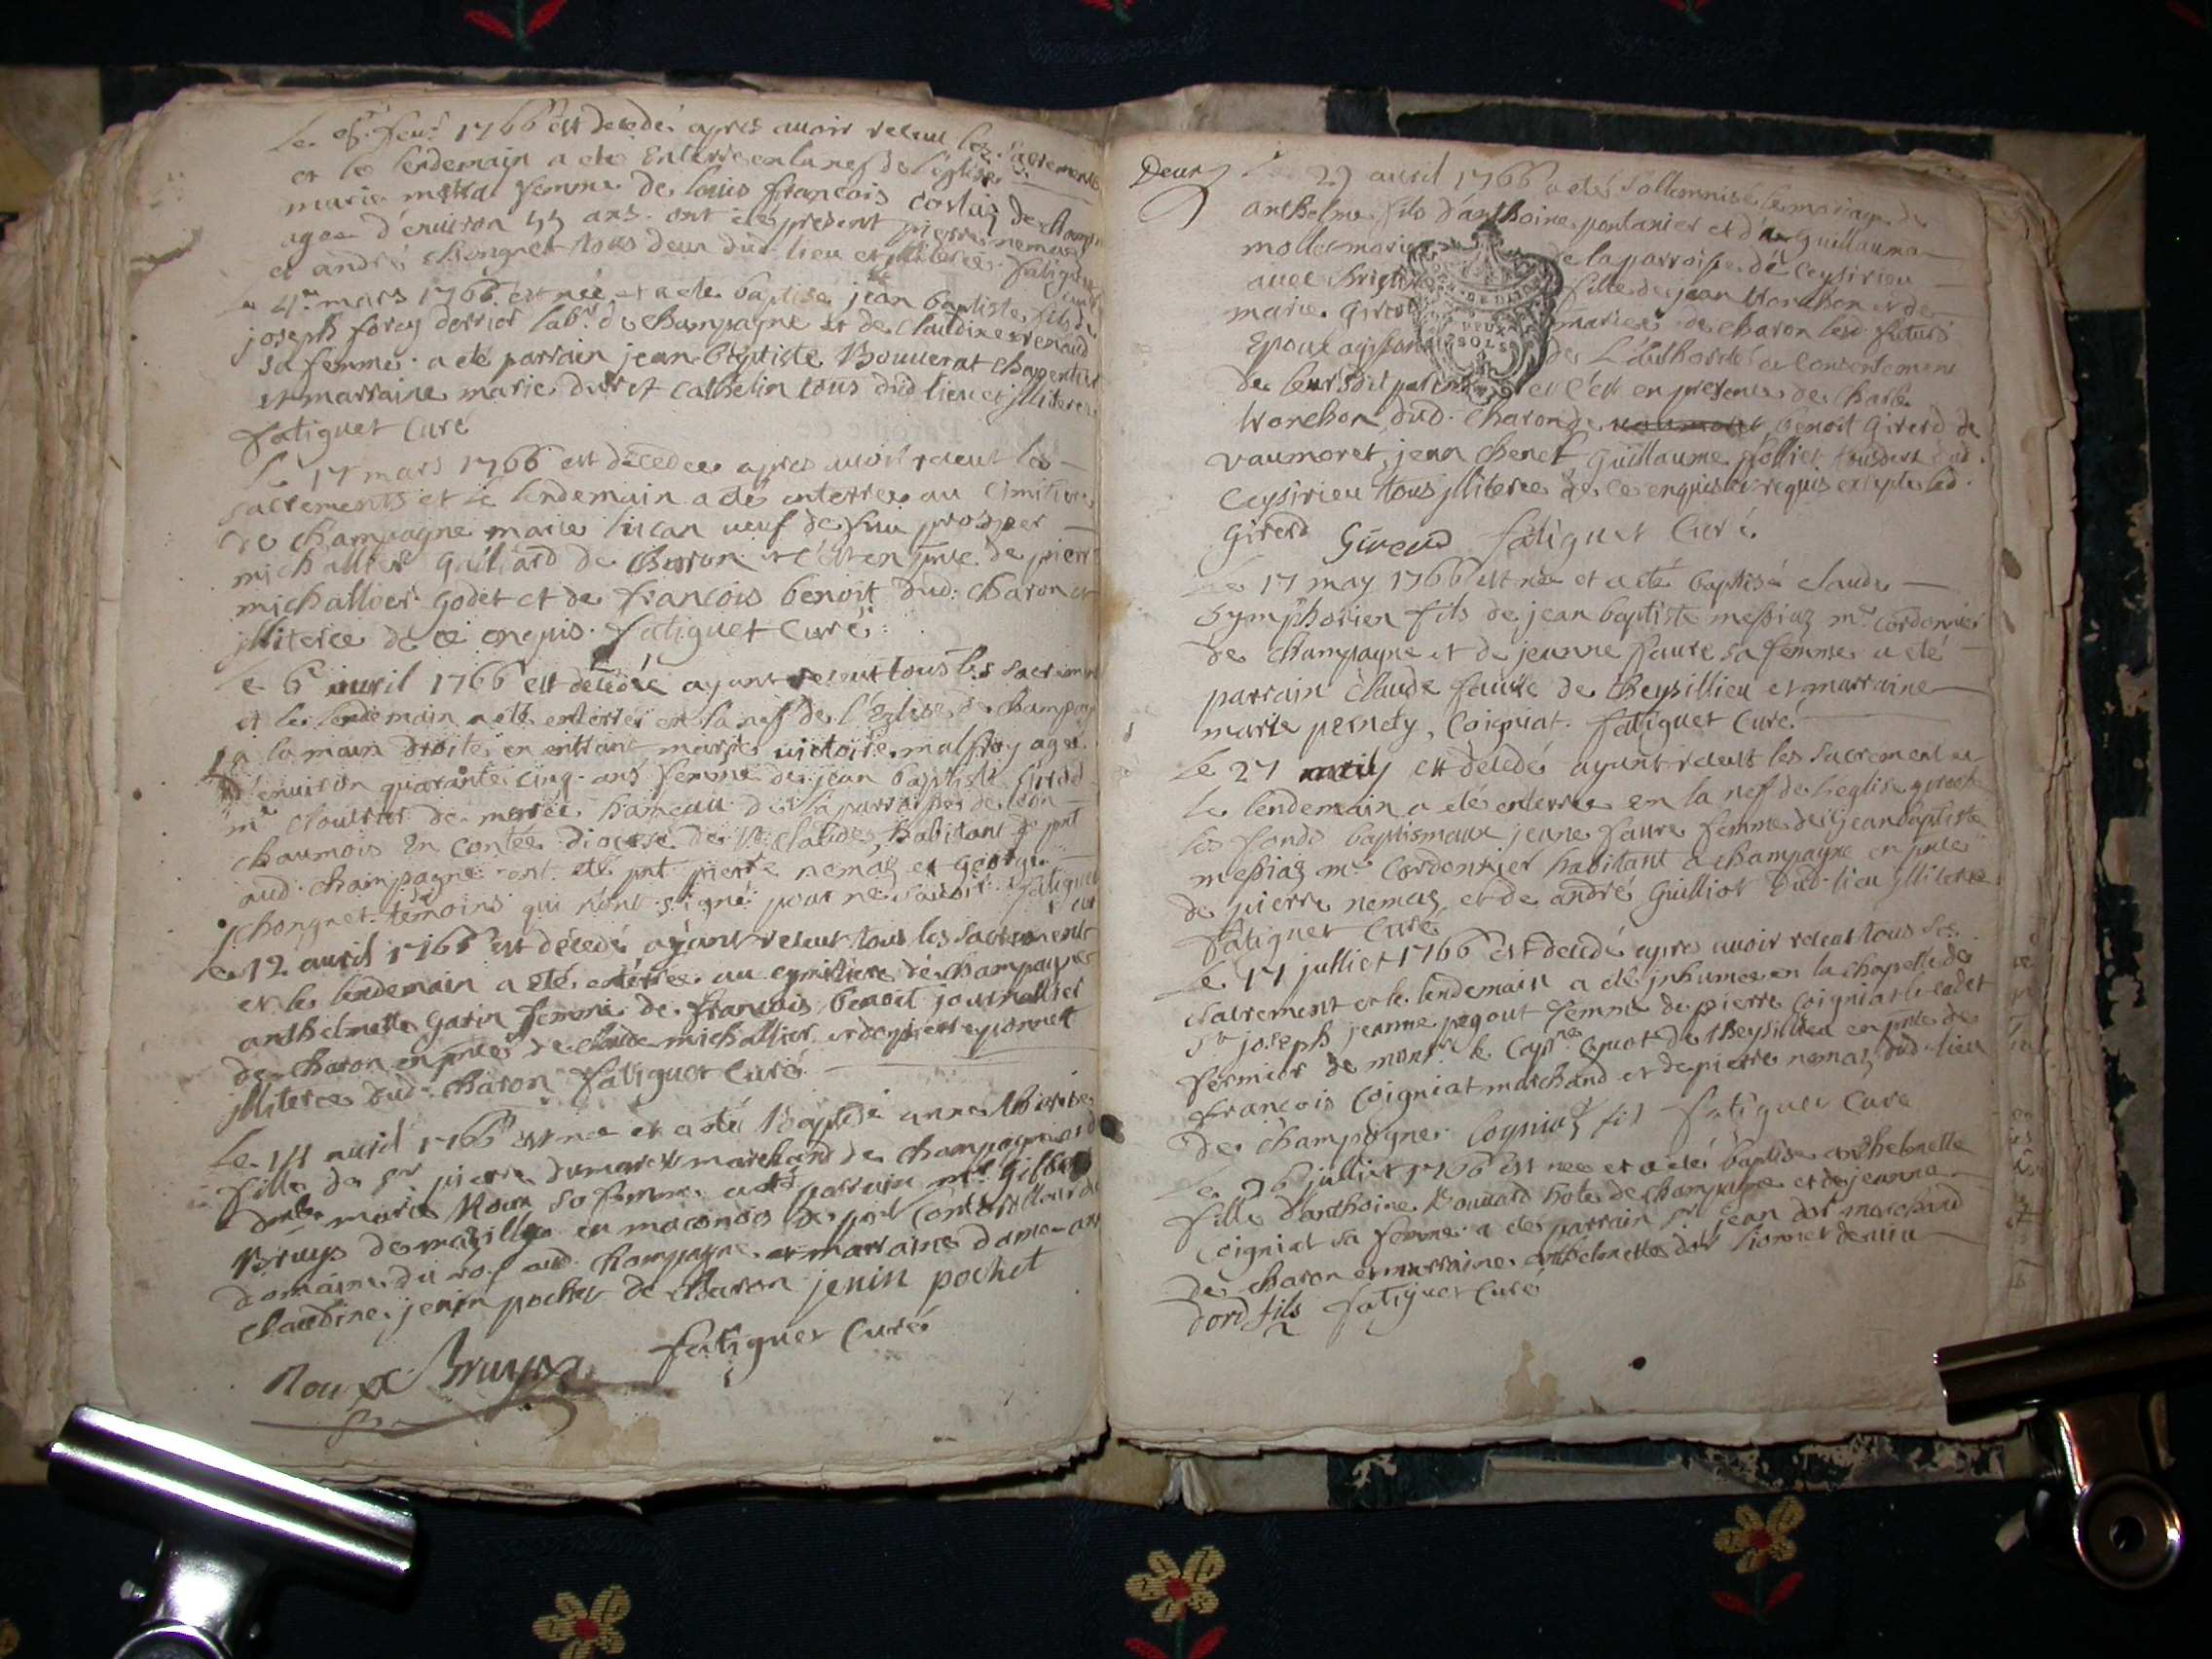 feur 1766 est decedé apres avoir receut les sacrements
et le lendemain a eté Enterré en la nef de l'église
marie femme de louis françois costaz de
agee d'environ ans ont eté present pierre nemaz
et andré chongnet tous deux dud lieu et jlliterés fatiguet
mars 1766 est née et a eté baptisé jean baptiste fils de
joseph forey derrier labr de champagne et de claudine renaud
sa femme a eté parrain jean baptiste Bouuerat charpentier
et marraine marie duret cathelin tous dud lieu et jlliterés
fatiguet curé
Le 17 mars 1766 est décedee apres avoir receut les
sacrements et le lendemain a eté enterree au cimitiere
de champagne marie lucan veuf de feu prosper
michallier guilliard de charon et c'est en pnce de pierre
michallier godet et de françois benoit dud. charon et
jlliteree de ce enquis. fatiguet curé
Le 6e avril 1766 est décedé ayant receut tous les sacrement
et le lendemain a eté enterréé en la nef de l'Eglise de champag
a la main droite en entrant marie victoire malfroy agee
d'environ quarante cinq ans femme de jean baptiste
me cloutier de morée hameau de la parroisse de
chaumois En contée diocese de st claude, habitant de pnt
aud. champagne ont eté pnt pierre nemaz et George
chongnet témoins qui n'ont signé pour ne savoir fatiguet
Le 12 avril 1766 est décedé ayant receut tous les sacrement
et le lendemain a eté enterrée au cymitiere de champagne
anthelmette garin femme de françois benoit journallier
de charon en pnce de claude michallier et de pierre yvonnet
jlliteree dud. charon fatiguet curé
Le 14 avril 1766 est née et a eté Baptisé anne
fille de sr pierre dumarest marchand de champagne et d
marie Roux sa femme a eté parrain mr gilbert
Bruys de mazille en maconois de pnt controlleur du
domaine du roy aud. champagne et marraine dame
claudine jenin pochet de charon jenin pochet
Roux Bruys fatiguet curé
Deux Le 29 avril 1766 a eté sollemnisé le mariage de
anthelme fils d'anthoine pontanier et de guillauma
mollie mariés de la parroisse de ceysirieu
avec fille de jean Wonchon et de
marie girerd mariés de charon lesd futurs
Epoux agissant de l'authorité et consentement
de leurs dit parents et c'est en presence de charle
Wonchon dud. charon de benoit girerd de
vaumoret, jean chenet guillaume follliet tousdeux dud.
ceysirieu tous jlliteree de ce enquis et requis excepté led.
girerd Gireud fatiguet curé.
Le 17 may 1766 est née et a eté baptisé claude
symphorien fils de jean baptiste messiaz me cordonnier
de champagne et de jeanne faure sa femme a eté
parrain claude faure de cheysillieu et marraine
marie pernety, coigniat. fatiguet curé.
Le 27 est decedé ayant receut les sacrement et
le lendemain a eté enterrée en la nef de l'eglise proche
les fonds baptismaux jeanne faure femme de jean baptiste
messiaz me cordonnier habitant a champagne en pnce
de pierre nemaz et de andré guilliot dud. lieu jlliteree
fatiguet curé
Le 17 julliet 1766 est decedé apres avoir receut tous les
sacrement et le lendemain a eté jnhumée en la chapelle de
st joseph jeanne pegout femme de pierre coigniat le cadet
fermier de monsr le capne cquot de cheysillieu en pnce de
françois coigniat marchand et de pierre nemaz dud. lieu
de champagne. coigniaz fil fatiguet curé
Le 26 julliet 1766 est nee et a eté baptisé anthelmette
fille d'anthoine Bouuard hote de champagne et de jeanne
coigniat sa femme a eté parrain sr jean dor marchand
de charon et marraine anthelmette dor lionnet de
dord fils fatiguet curé